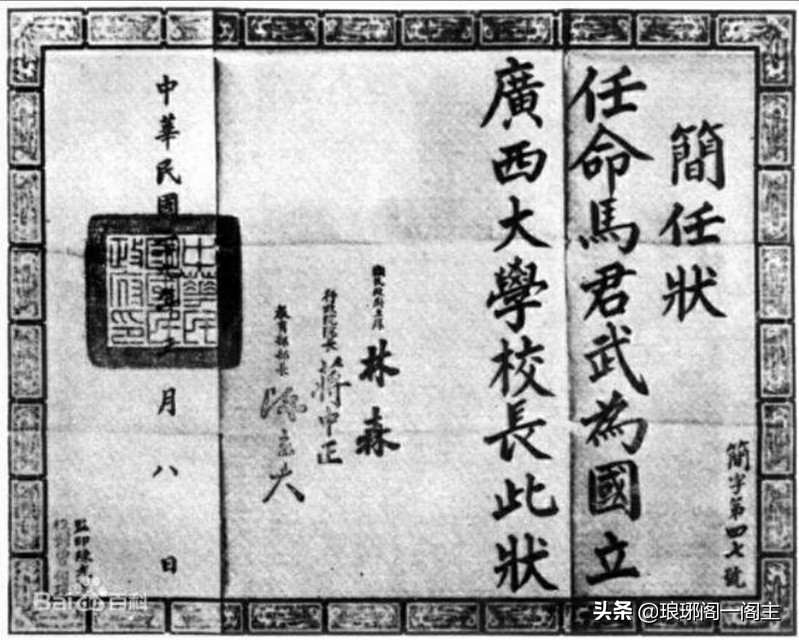 簡字第四七號
簡任狀
任命馬君武為國立
廣西大學校長此狀
國民政府主席 林森
行政院院長 蔣中正
教育部部長 陳立夫
中華民國 月八日
監印陳
Baidu百科
头条 @琅琊阁一阁主